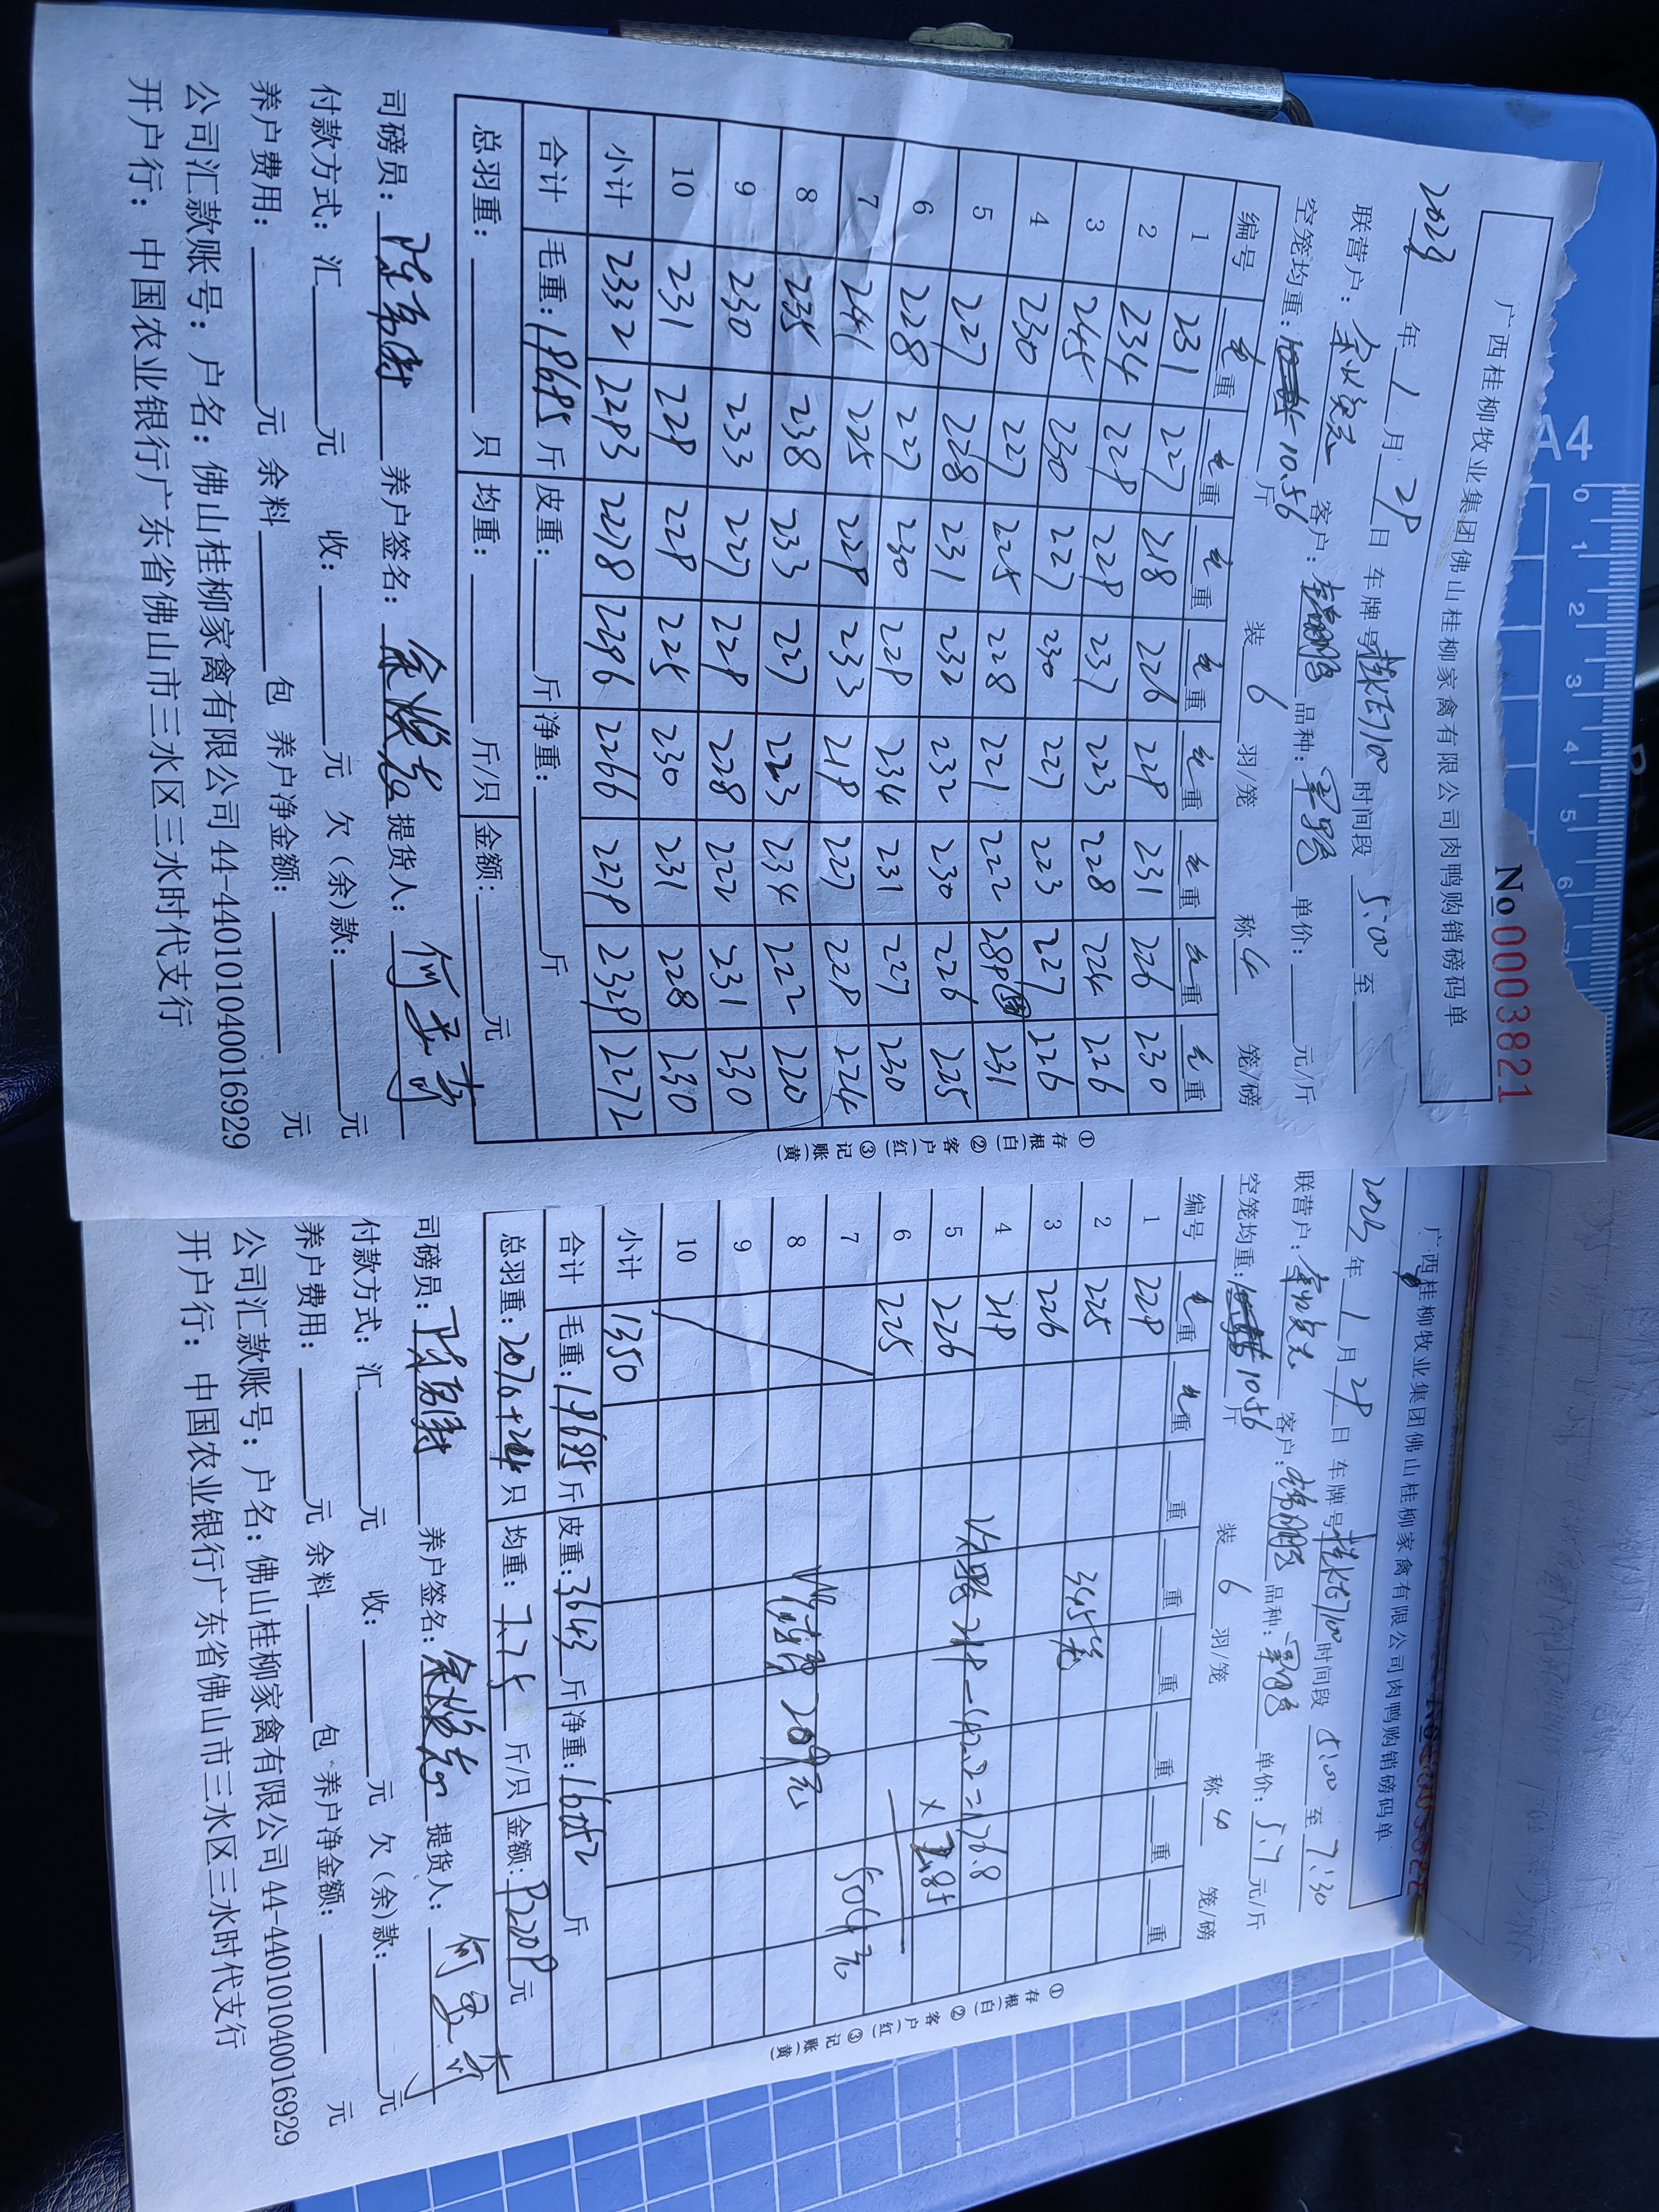 No 0003821
广西桂柳牧业集团佛山桂柳家禽有限公司肉鸭购销磅码单
2023年1月29日 车牌号 时间段 5:00 至
联营户: 客户: 品种: 单价: 元/斤
空笼均重: 10.56 斤 装 6 羽/笼 称 4 笼/磅
编号 毛重 毛重 毛重 毛重 毛重 毛重 毛重 毛重
1 231 227 218 226 229 231 226 230
2 234 229 229 237 223 228 224 226
3 245 230 227 230 227 223 227 226
4 230 227 225 228 221 222 289 231
5 227 228 231 232 232 230 226 225
6 228 227 230 229 234 231 227 230
7 241 225 229 233 219 227 229 224
8 235 238 233 227 223 234 222 220
9 230 233 227 229 228 222 231 230
10 231 229 229 225 230 231 228 230
小计 2332 2293 2278 2296 2266 2279 2329 2272
合计 毛重: 19695 斤 皮重: 斤 净重: 斤
总羽重: 只 均重: 斤/只 金额: 元
司磅员: 养户签名: 提货人:
付款方式: 汇 元 收: 元 欠(余)款: 元
养户费用: 元 余料 包 养户净金额: 元
公司汇款账号: 户名: 佛山桂柳家禽有限公司 44-440101040016929
开户行: 中国农业银行广东省佛山市三水区三水时代支行
①存根(白) ②客户(红) ③记账(黄)
广西桂柳牧业集团佛山桂柳家禽有限公司肉鸭购销磅码单
2023年1月29日 车牌号 时间段 5:00 至 7:30
联营户: 客户: 品种: 单价: 5.7 元/斤
空笼均重: 10.56 斤 装 6 羽/笼 称 4 笼/磅
编号 毛重 毛重 重 重 重 重 重 重
1 229
2 225 345笼
3 226
4 219 次鸭 219-42.2=176.8
5 226 ×2.85
6 225
7 504元
8 209元
9
10
小计 1350
合计 毛重: 19695 斤 皮重: 3643 斤 净重: 16052 斤
总羽重: 2070+24 只 均重: 7.75 斤/只 金额: 92209 元
司磅员: 养户签名: 提货人:
付款方式: 汇 元 收: 元 欠(余)款: 元
养户费用: 元 余料 包 养户净金额: 元
公司汇款账号: 户名: 佛山桂柳家禽有限公司 44-440101040016929
开户行: 中国农业银行广东省佛山市三水区三水时代支行
①存根(白) ②客户(红) ③记账(黄)
A4
0 1 2 3 4 5 6 7